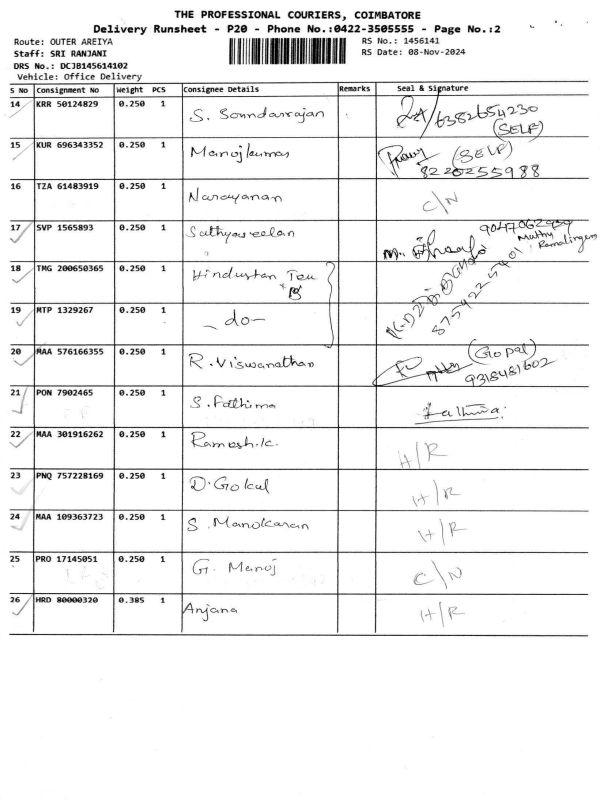 THE PROFESSIONAL COURIERS, COIMBATORE
Delivery Runsheet - P20 - Phone No.:0422-3505555 - Page No.:2
Route: OUTER AREIYA
RS No.: 1456141
Staff: SRI RANJANI
RS Date: 08-Nov-2024
DRS No.: DCJB145614102
Vehicle: Office Delivery
S No Consignment No Weight PCS Consignee Details Remarks Seal & Signature
14 KRR 50124829 0.250 1 S. Soundarrajan 6382654230
(SELF)
15 KUR 696343352 0.250 1 Manojkumar (SELF)
8220255988
16 TZA 61483919 0.250 1 Narayanan C/N
17 SVP 1565893 0.250 1 Sathyaseelan
Muthu
Ramalingam
18 TMG 200650365 0.250 1 Hindustan
19 MTP 1329267 0.250 1 -do-
20 MAA 576166355 0.250 1 R. Viswanathan (Gopal)
9318481602
21 PON 7902465 0.250 1 S. Fathima Fathima
22 MAA 301916262 0.250 1 Ramesh.K. H/R
23 PNQ 757228169 0.250 1 D. Gokul H/R
24 MAA 109363723 0.250 1 S. Manokaran H/R
25 PRO 17145051 0.250 1 G. Manoj C/N
26 HRD 80000320 0.385 1 Anjana H/R